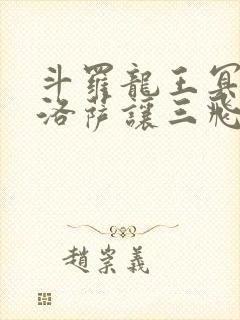 斗羅龍王冥
洛薩讓三飛
趙崇義